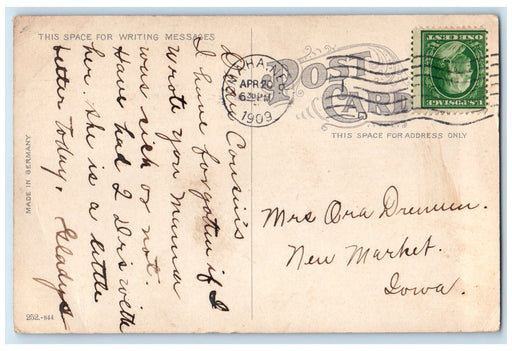 THIS SPACE FOR WRITING MESSAGES
Dear Cousins
I have forgotten if I
wrote you Mama
was sick or not.
Have had 2 Drs with
her. She is a little
better today. Gladys
MADE IN GERMANY
252.-844
OMAHA, NEB.
APR 20
6 30 PM
1909
POST
CARD
THIS SPACE FOR ADDRESS ONLY
U.S. POSTAGE
ONE CENT
Mrs Ora Drennen.
New Market.
Iowa.